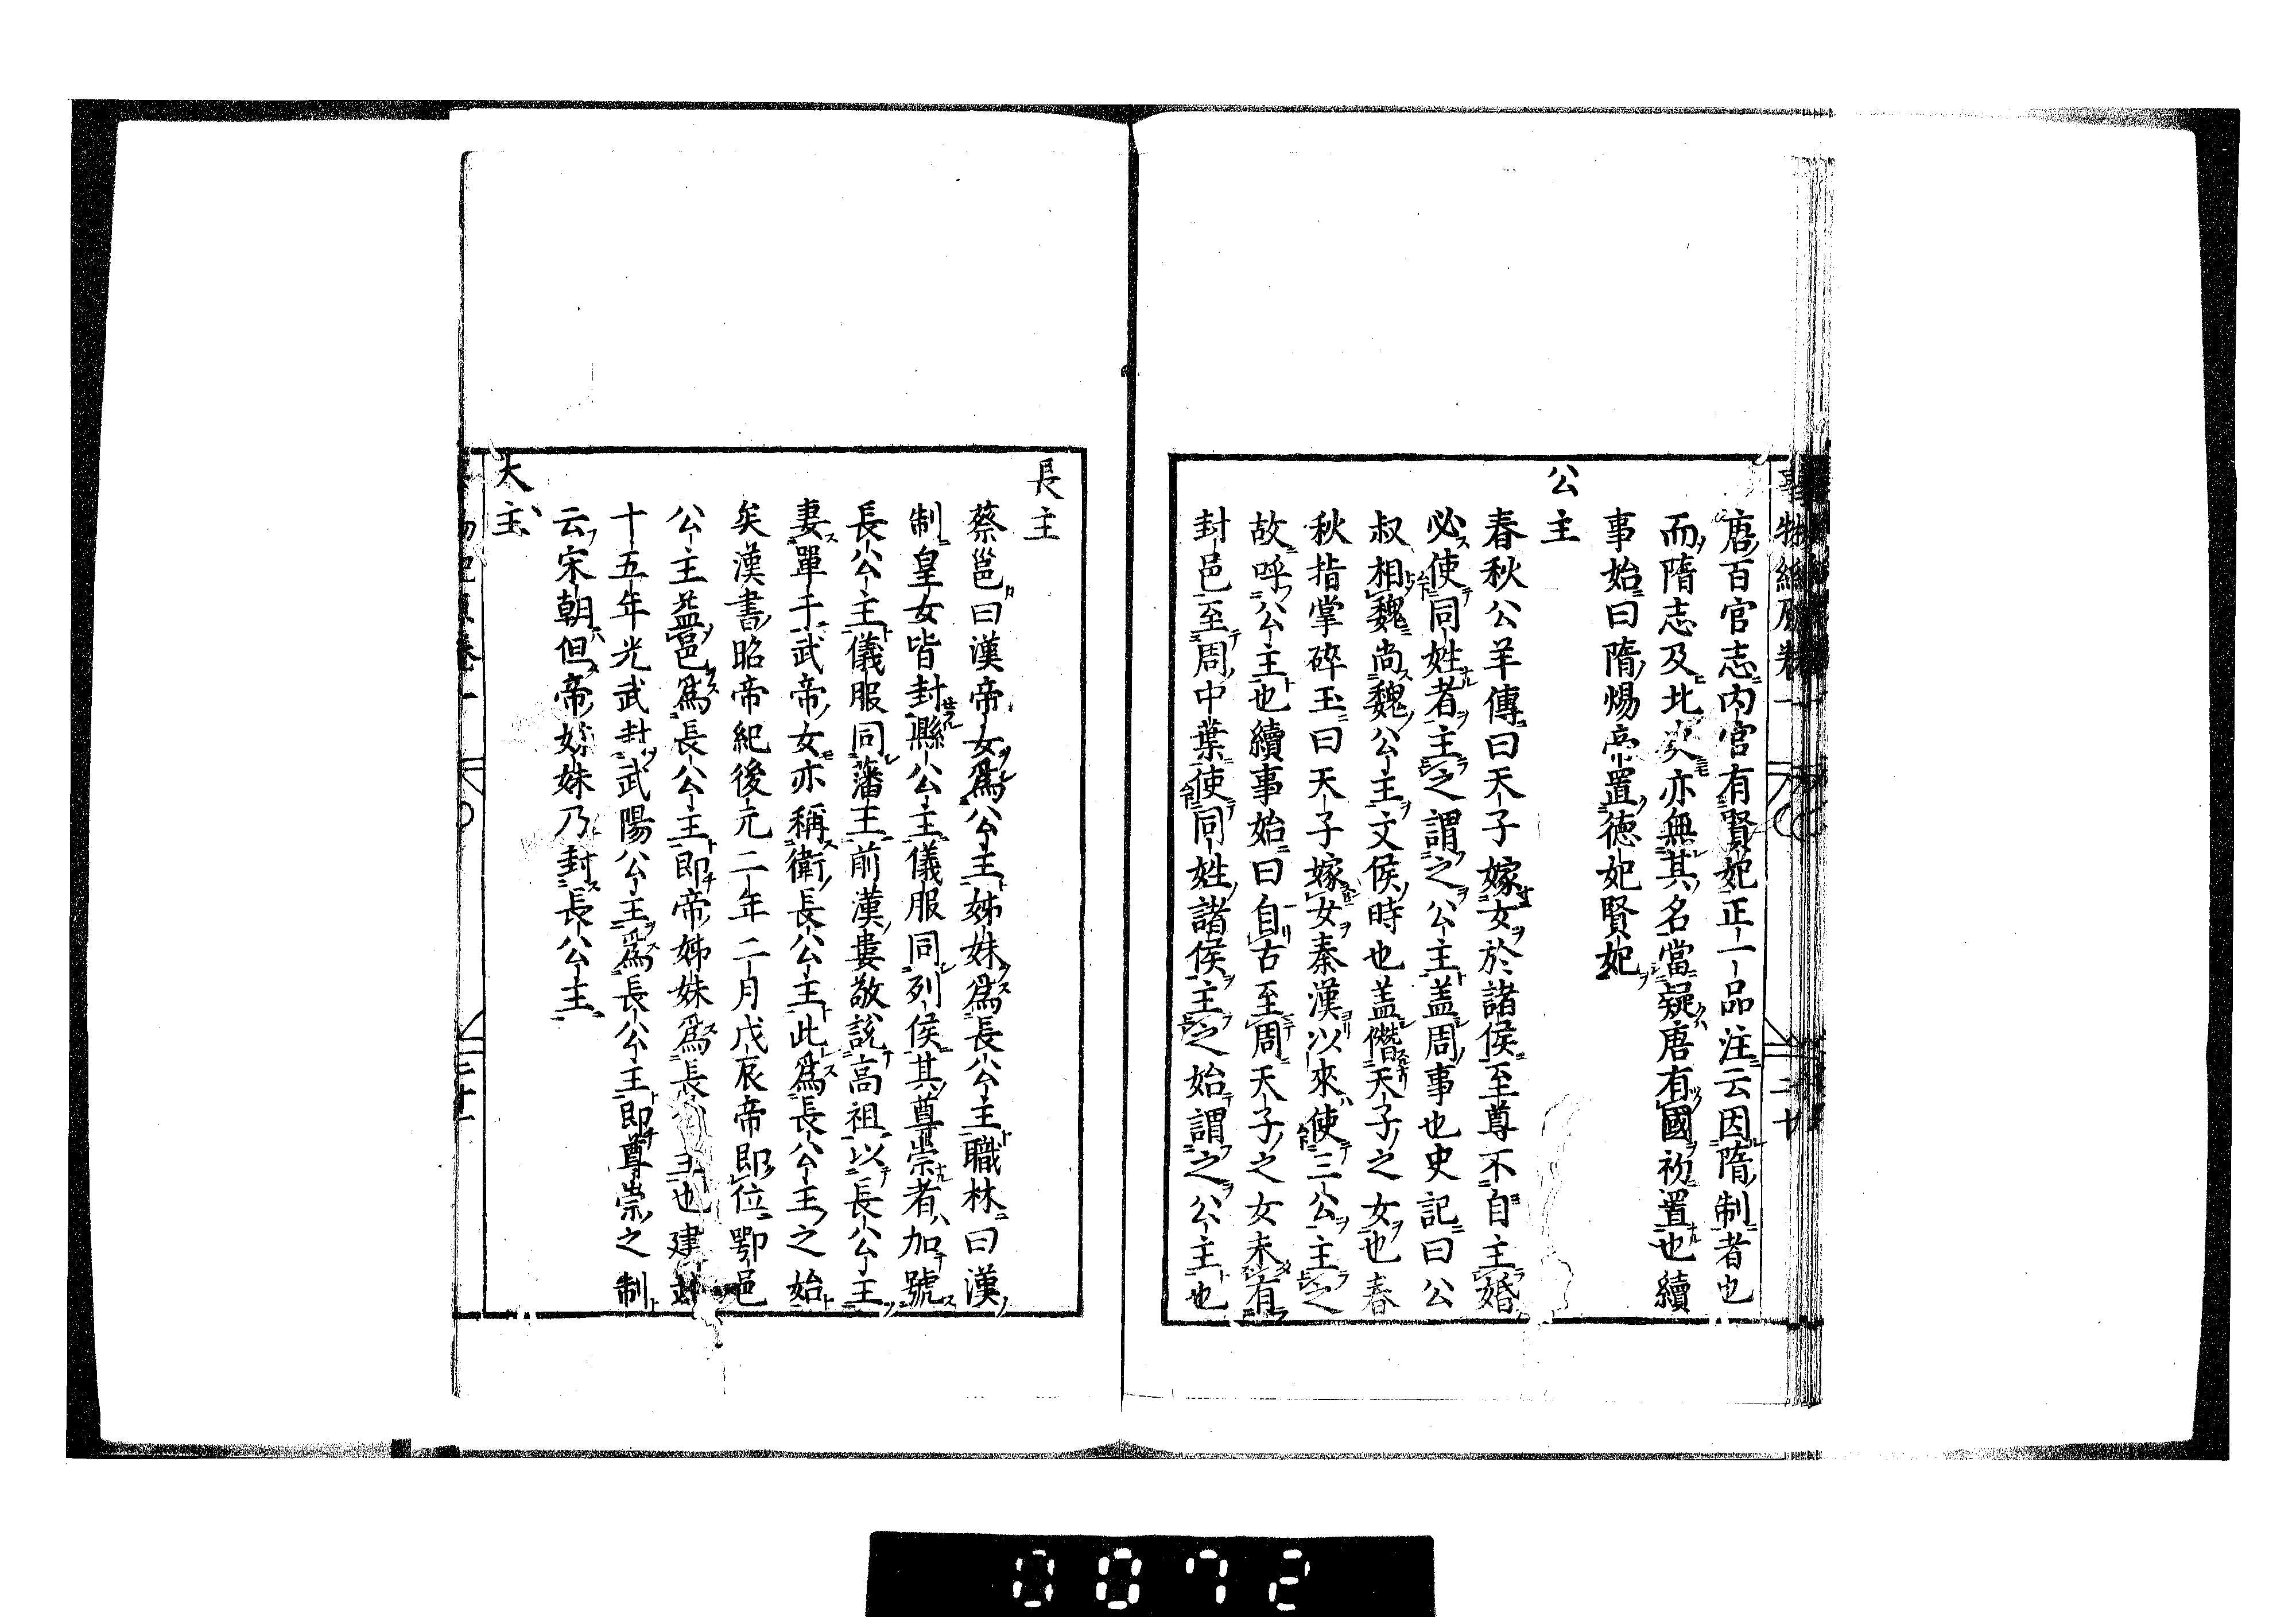 唐百官志内官有賢妃正一品注云因隋制者也
而隋志及北史亦無其名當疑唐有國初置也續
事始曰隋煬帝置徳妃賢妃
公主
春秋公羊傳曰天子嫁女於諸侯至尊不自主婚
必使同姓者主之謂之公主盖周事也史記曰公
叔相魏尚魏公主文侯時也盖僭天子之女也春
秋指掌碎玉曰天子嫁女秦漢以來使三公主之
故呼公主也續事始曰自古至周天子之女未有
封邑至周中葉使同姓諸侯主之始謂之公主也
長主
蔡邕曰漢帝女爲公主姊妹爲長公主職林曰漢
制皇女皆封縣公主儀服同列侯其尊崇者加號
長公主儀服同藩王前漢婁敬說高祖以長公主
妻單于武帝女亦稱衛長公主此爲長公主之始
矣漢書昭帝紀後元二年二月戊辰帝即位鄂邑
公主益邑爲長公主即帝姊妹爲長主也建武
十五年光武封武陽公主爲長公主即尊崇之制
云宋朝但帝姊妹乃封長公主
大主
0072